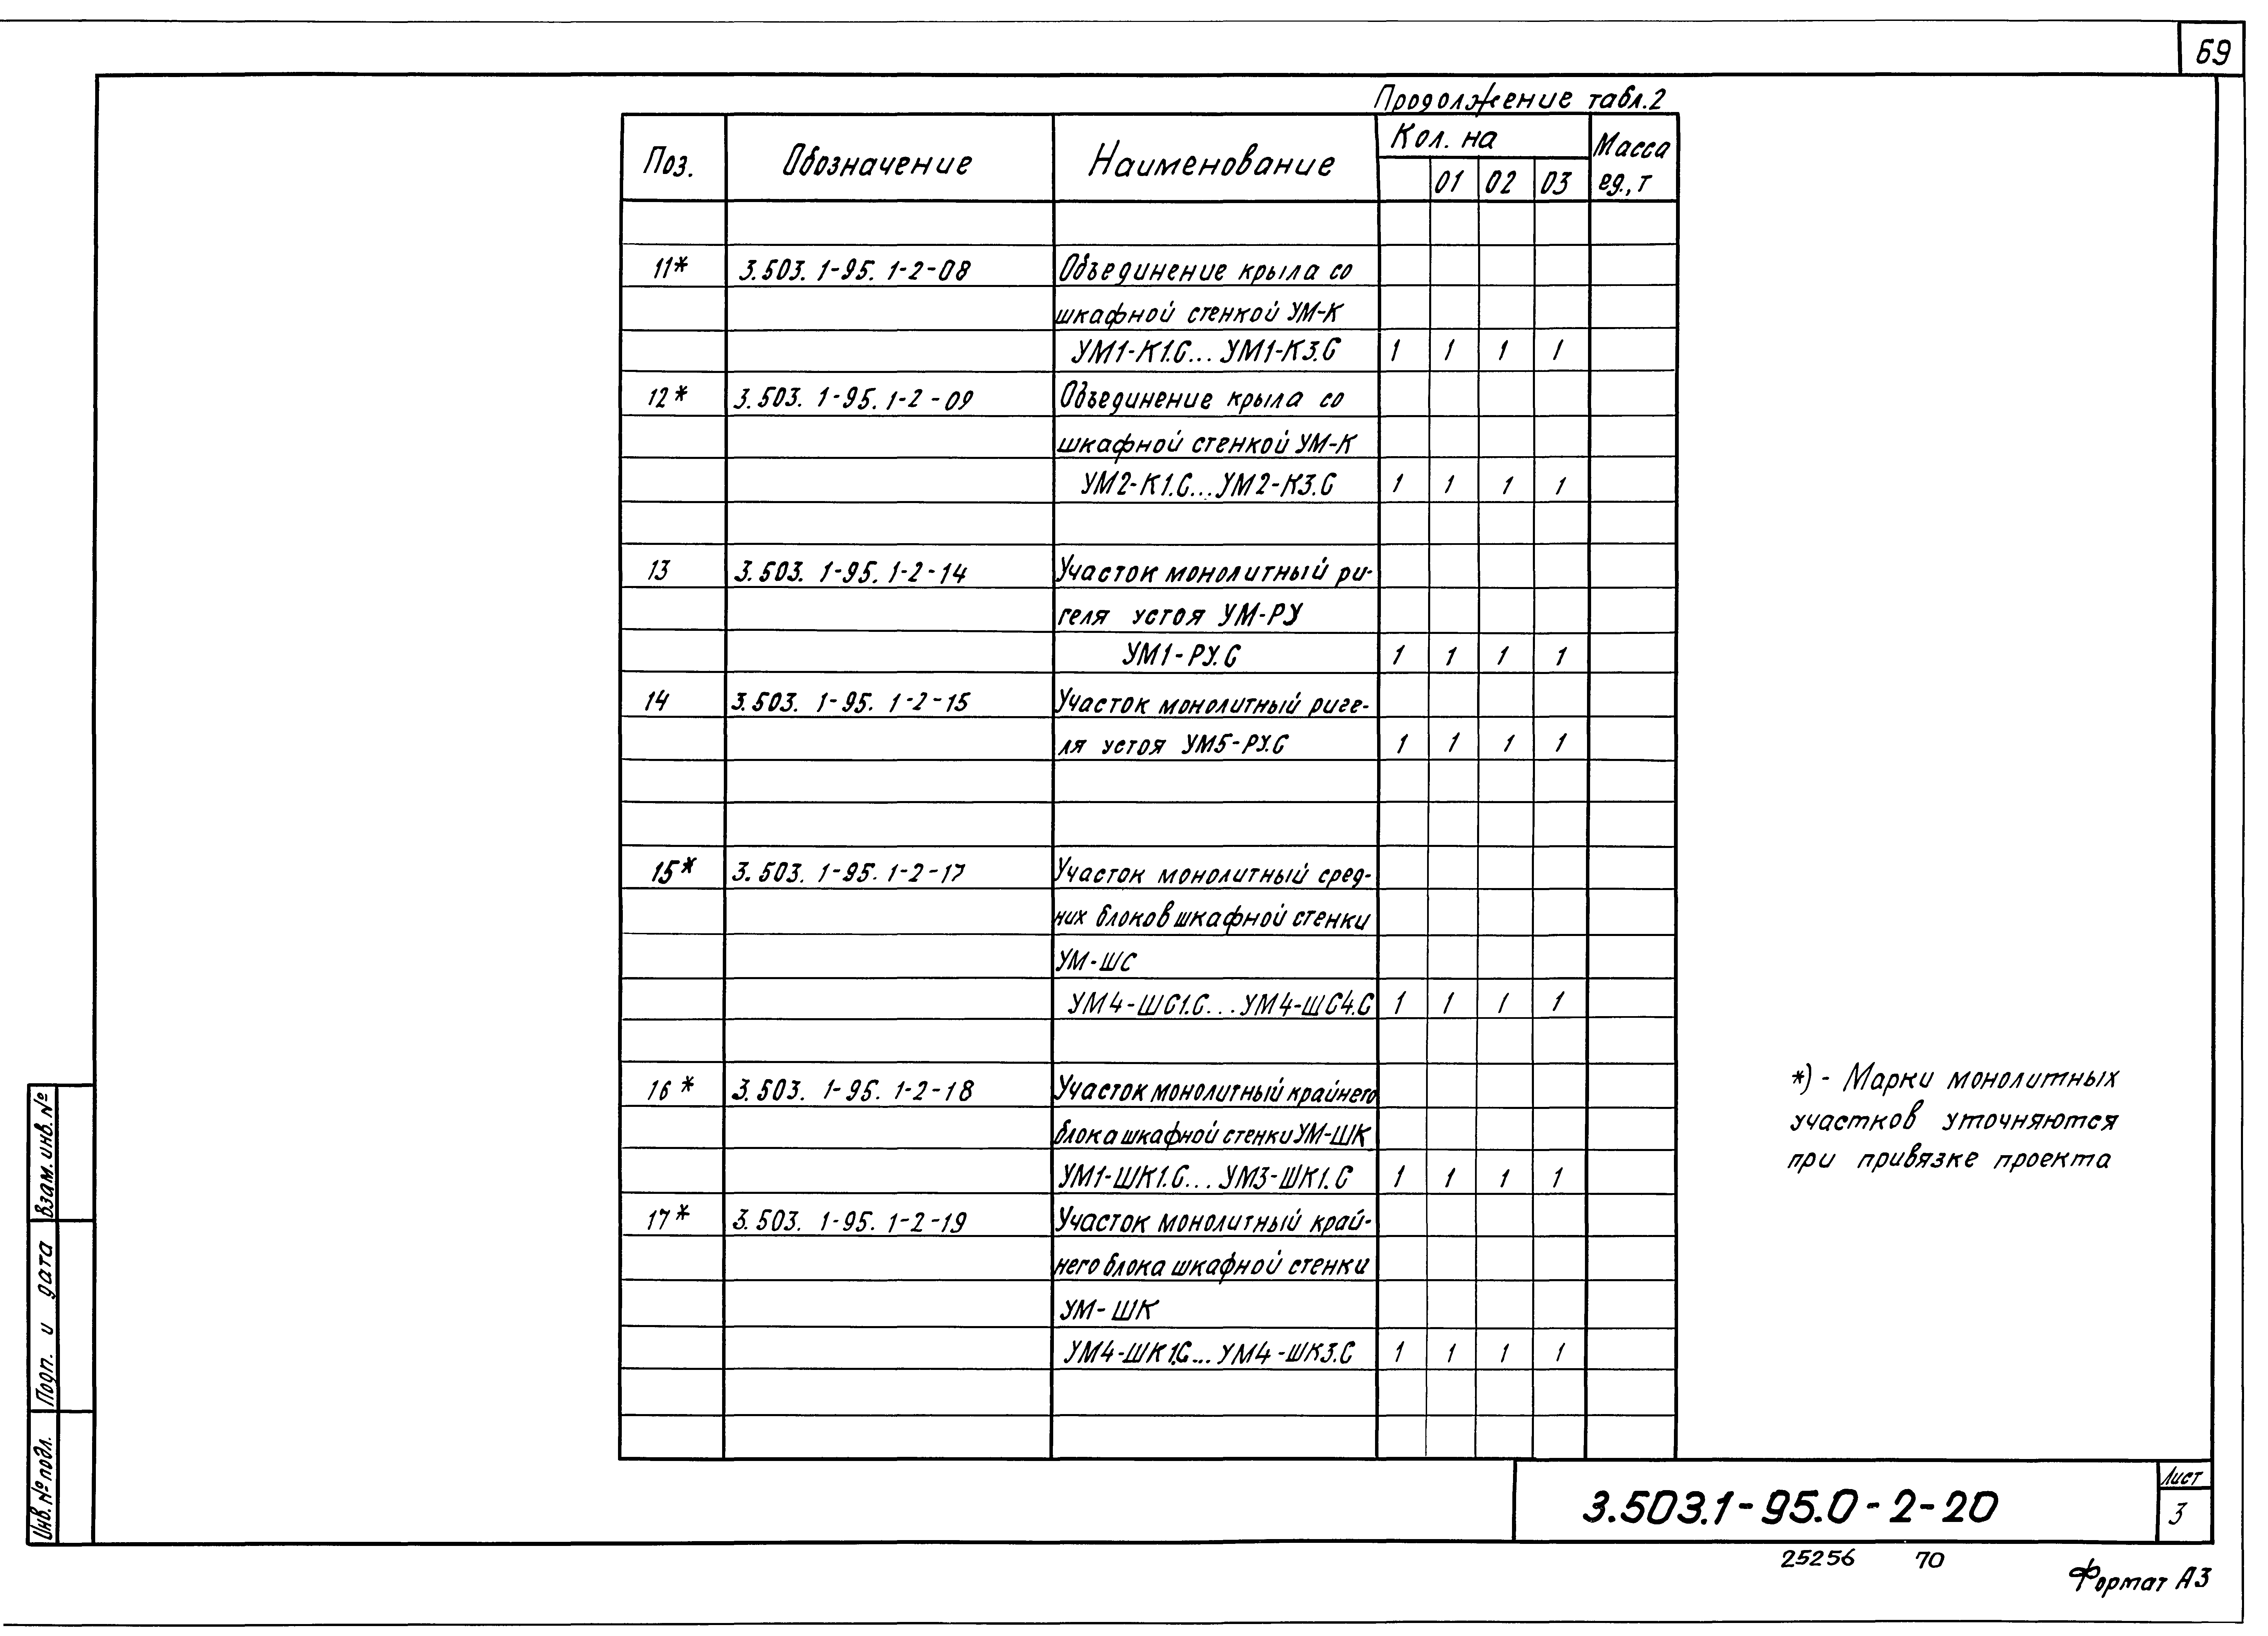 69
Продолжение табл.2
Поз. Обозначение Наименование Кол. на Масса ед., т
01 02 03
11* 3.503. 1-95. 1-2-08 Объединение крыла со
шкафной стенкой УМ-К
УМ1-К1.С... УМ1-К3.С 1 1 1 1
12* 3.503. 1-95. 1-2-09 Объединение крыла со
шкафной стенкой УМ-К
УМ2-К1.С...УМ2-К3.С 1 1 1 1
13 3.503. 1-95. 1-2-14 Участок монолитный ри-
геля устоя УМ-РУ
УМ1-РУ.С 1 1 1 1
14 3.503. 1-95. 1-2-15 Участок монолитный риге-
ля устоя УМ5-РУ.С 1 1 1 1
15* 3.503. 1-95. 1-2-17 Участок монолитный сред-
них блоков шкафной стенки
УМ-ШС
УМ4-ШС1.С...УМ4-ШС4.С 1 1 1 1
16* 3.503. 1-95. 1-2-18 Участок монолитный крайнего
блока шкафной стенки УМ-ШК
УМ1-ШК1.С...УМ3-ШК1.С 1 1 1 1
17* 3.503. 1-95. 1-2-19 Участок монолитный край-
него блока шкафной стенки
УМ-ШК
УМ4-ШК1.С...УМ4-ШК3.С 1 1 1 1
*) - Марки монолитных
участков уточняются
при привязке проекта
Взам. инв. №
Подп. и дата
Инв. № подл.
3.503.1-95.0-2-20
Лист
3
25256 70
Формат А3